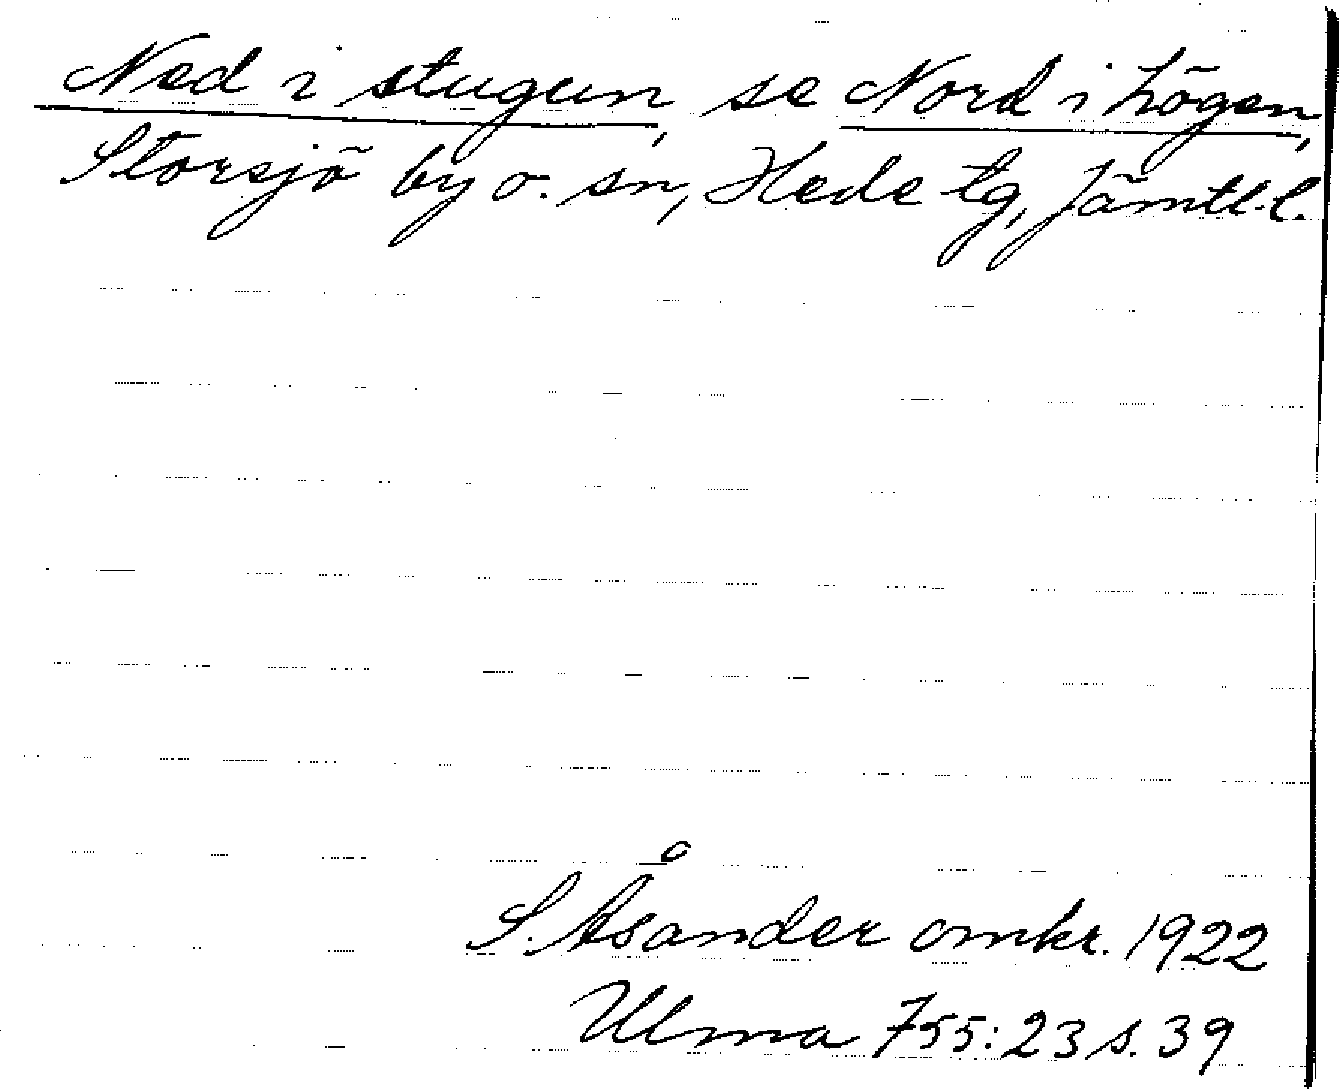 Ned i stugun, se Nord i högen,
Storsjö by o. sn, Hede tg, Jämtl. l.
S. Åsander omkr. 1922
Ulma 755:23 s. 39